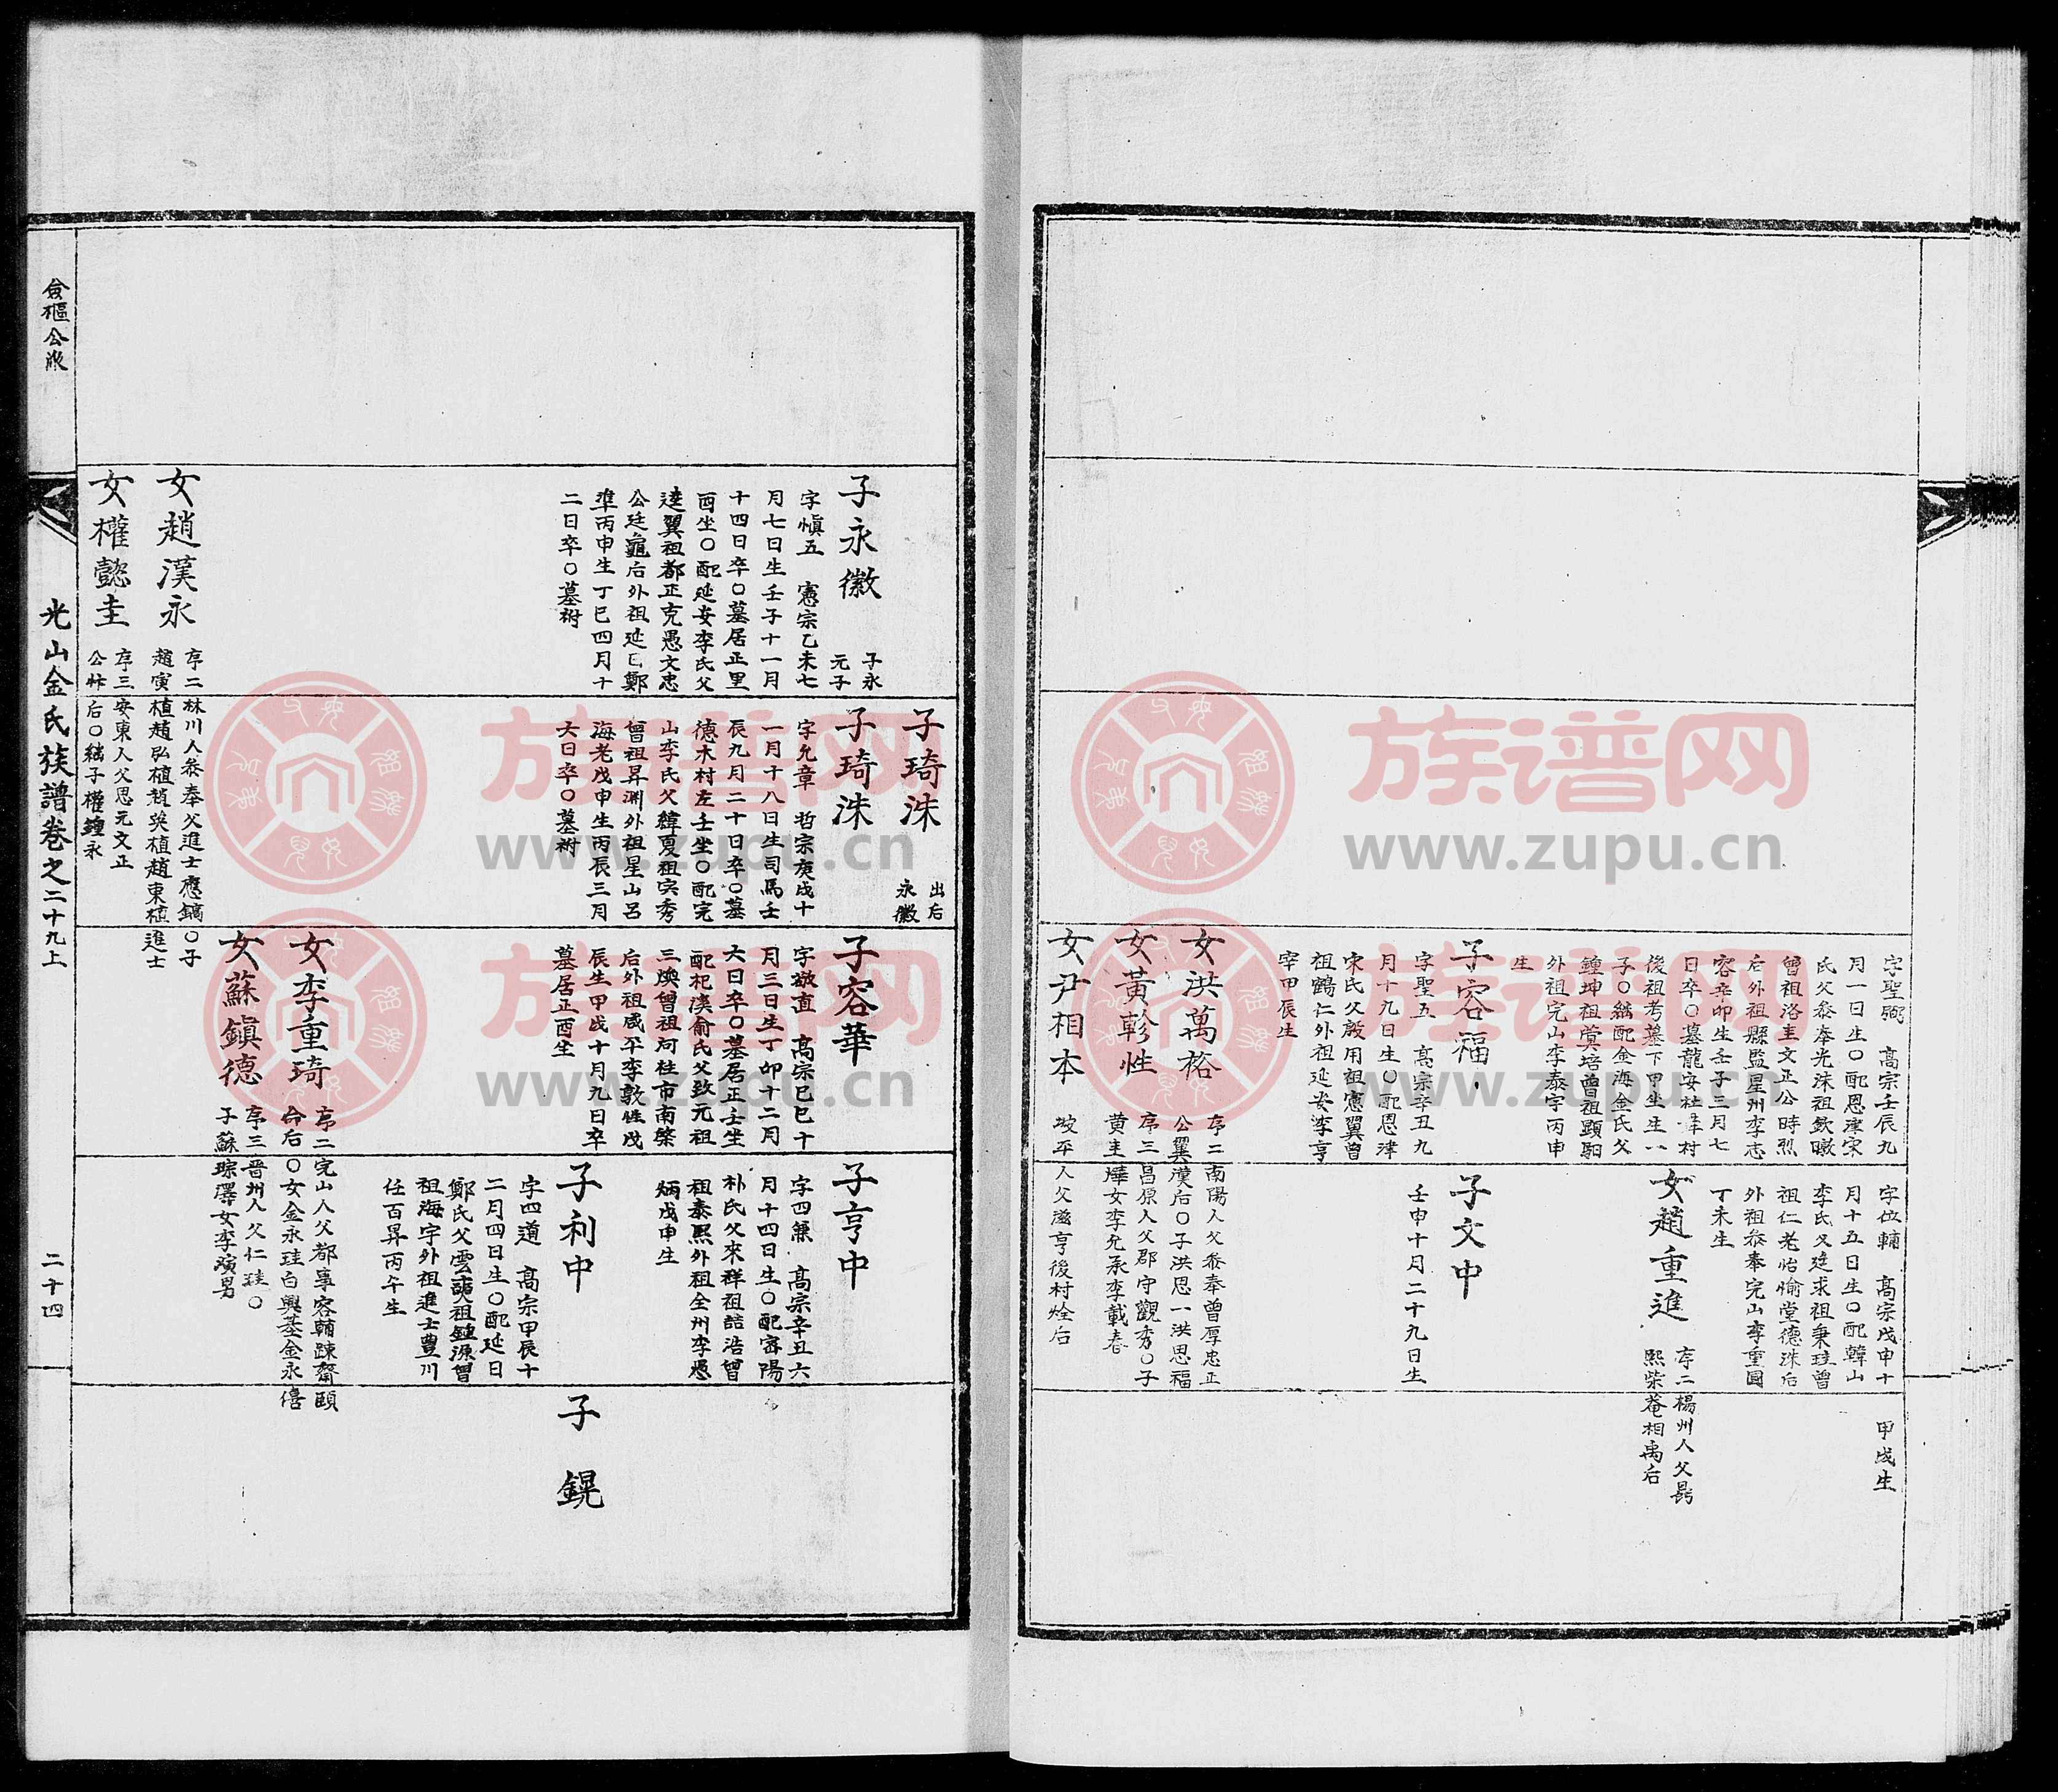 字聖弼　高宗壬辰九
月一日生○配恩津宋
氏父叅奉光洙祖欽暾
曾祖洛圭文正公時烈
后外祖縣監星州李志
容辛卯生壬子三月七
日卒○墓龍安杜洋村
後祖考墓下甲坐生八
子○繼配金海金氏父
鍾坤祖棠培曾祖顕駉
外祖完山李泰宇丙申
生
子容福
字聖五　高宗辛丑九
月十九日生○配恩津
宋氏父殷用祖憲翼曾
祖鶴仁外祖延安李亨
宰甲辰生
女洪萬裕
序二南陽人父叅奉曾厚忠正
公翼漢后○子洪思一洪思福
女黃軫性
序三昌原人父郡守觀秀○子
黄圭燁女李允承李載春
女尹相本
坡平人父滋亨後村烇后
字位輔　高宗戊申十
月十五日生○配韓山
李氏父廷求祖秉珪曾
祖仁老怡愉堂德洙后
外祖叅奉完山李重圓
丁未生
女趙重進
序二楊州人父昺
熙柴菴相禹后
子文中
壬申十月二十九日生
甲戌生
子永徽
子永
元子
字愼五　憲宗乙未七
月七日生壬子十一月
十四日卒○墓居正里
酉坐○配延安李氏父
逵翼祖都正克愚文忠
公廷龜后外祖延日鄭
準丙申生丁巳四月十
二日卒○墓祔
女趙漢永
序二林川人叅奉父進士應鎬○子
趙寅植趙弘植趙英植趙東植進士
女權懿圭
序三安東人父思元文正
公忭后○繼子權鍾永
子琦洙
出后
永徽
子琦洙
字允章　哲宗庚戌十
一月十八日生司馬壬
辰九月二十日卒○墓
德木村左壬坐○配完
山李氏父緯夏祖宲秀
曾祖昇淵外祖星山呂
海老戊申生丙辰三月
六日卒○墓祔
子容華
字敬直　高宗己巳十
月三日生丁卯十二月
六日卒○墓居正壬坐
配杞溪俞氏父致元祖
三煥曾祖河柱市南棨
后外祖咸平李敦性戊
辰生甲戌十月九日卒
墓居正酉坐
女李重琦
序二完山人父都事容輔踈齋頤
命后○女金永珪白興基金永僖
女蘇鎭德
序三晉州人父仁珪○
子蘇琮澤女李演男
子亨中
字四兼　高宗辛丑六
月十四日生○配密陽
朴氏父來祥祖喆浩曾
祖泰熙外祖全州李憑
炳戊申生
子利中
字四道　高宗甲辰十
二月四日生○配延日
鄭氏父雲奭祖鍾源曾
祖海宇外祖進士豊川
任百昇丙午生
子鎤
僉樞公派
光山金氏族譜卷之二十九上
二十四
族谱网
www.zupu.cn
族谱网
www.zupu.cn
族谱网
www.zupu.cn
族谱网
www.zupu.cn